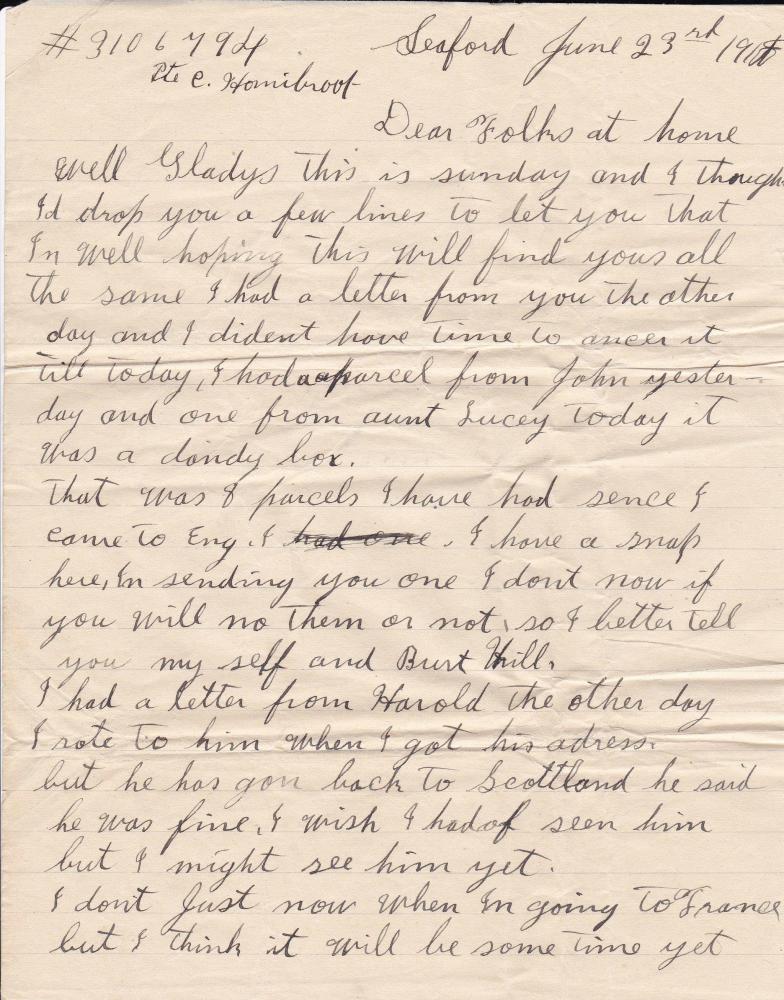 #3106794. Seaford June 23rd 1918
Pte C. Hornibroof
Dear Folks at home
Well Gladys this is sunday and I though
I'd drop you a few lines to let you that
Im well hoping this will find yous all
the same I had a letter from you the other
day and I dident have time to ancer it
till today, I had a parcel from John yester-
day and one from aunt Lucey today it
was a dandy box.
That was 8 parcels I have had sence I
came to Eng. I had one. I have a snap
here, Im sending you one I dont now if
you will no them or not, so I better tell
you my self and Burt Hill.
I had a letter from Harold the other day
I rote to him when I got his adress.
but he has gon back to Scottland he said
he was fine, I wish I had of seen him
but I might see him yet.
I dont Just now when Im going to France
but I think it will be some time yet